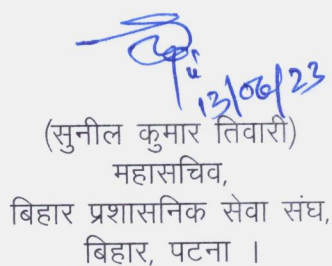 13/06/23
(सुनील कुमार तिवारी)
महासचिव,
बिहार प्रशासनिक सेवा संघ,
बिहार, पटना ।